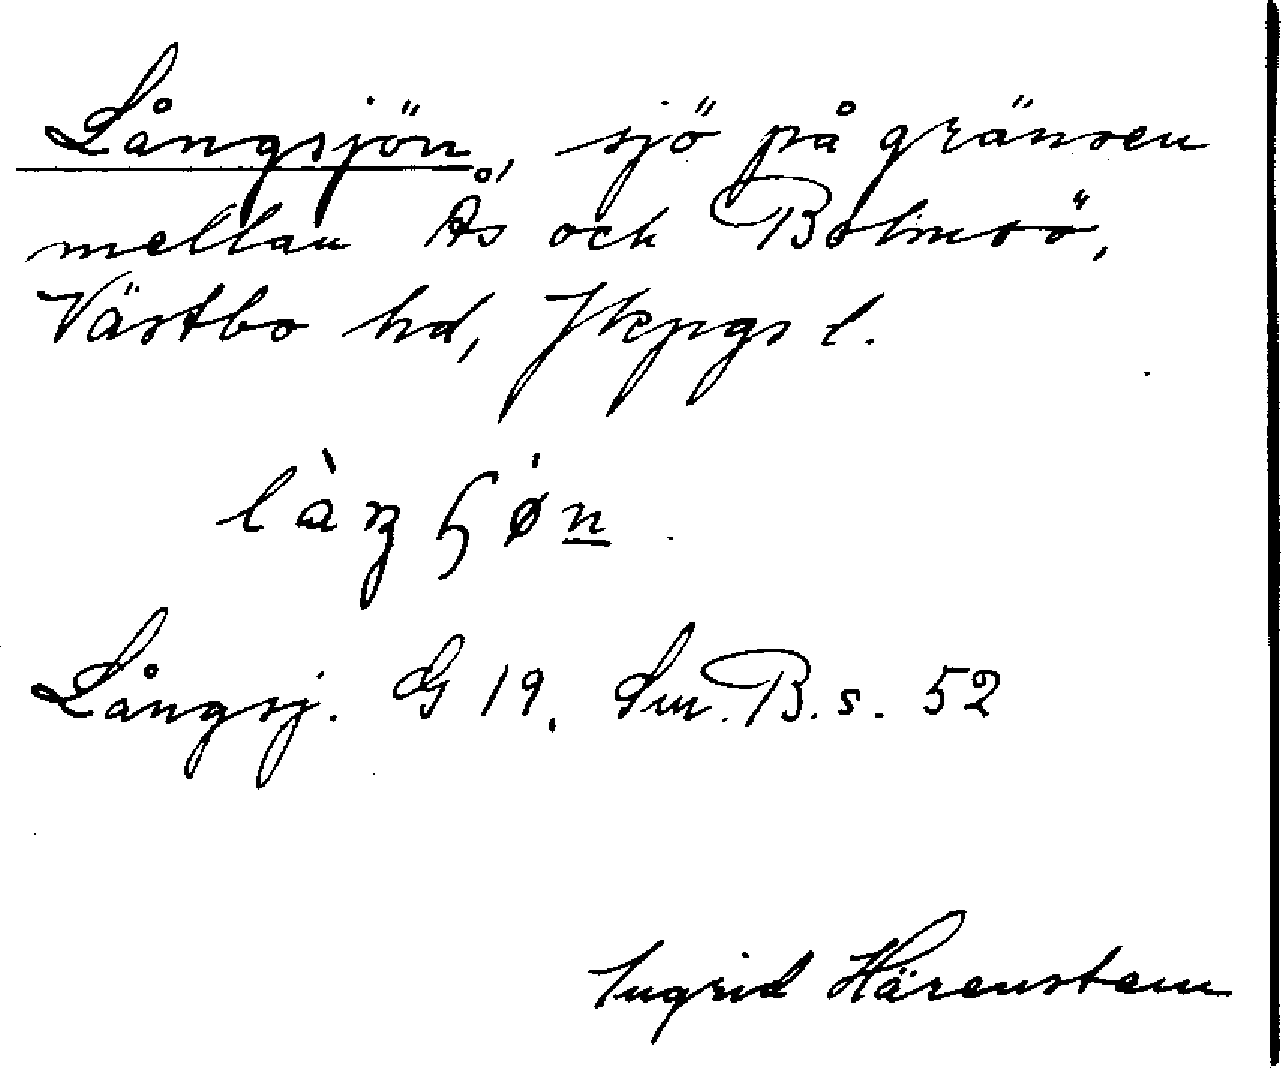 Långsjön, sjö på gränsen
mellan Ås och Bolmsö,
Västbo hd, Jkpgs l.
Långsj. G 19. Sm. B. s. 52
Ingrid Härenstam